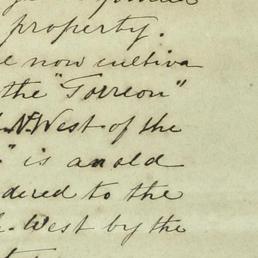 property.
now cultiva
the "Torreon"
N. West of the
" is an old
dered to the
West by the